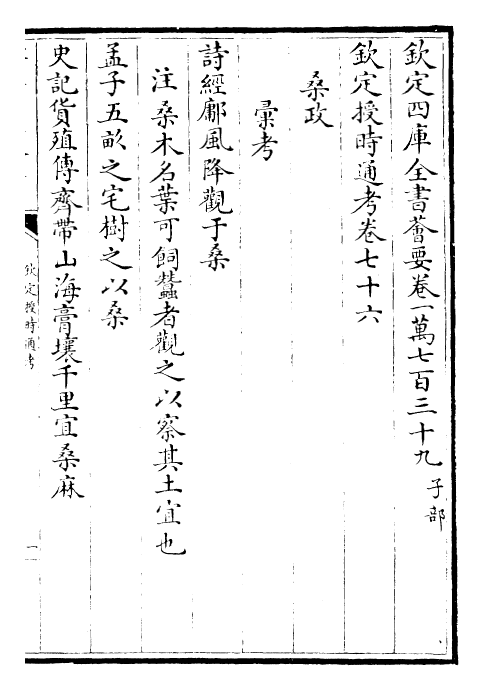 欽定四庫全書薈要卷一萬七百三十九 子部
欽定授時通考卷七十六
桑政
彙考
詩經鄘風降觀于桑
注桑木名葉可飼蠶者觀之以察其土宜也
孟子五畝之宅樹之以桑
史記貨殖傳齊帶山海膏壤千里宜桑麻
欽定授時通考
一